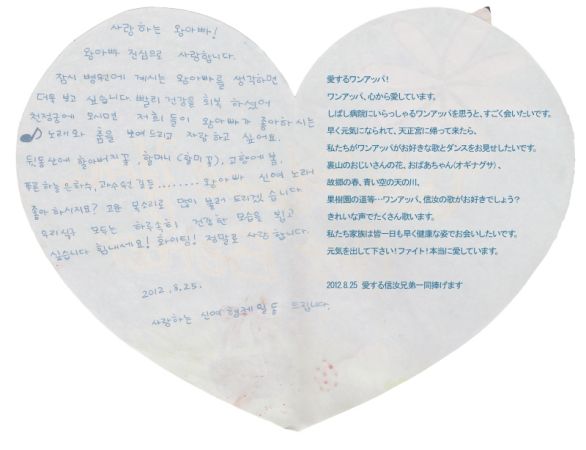 사랑하는 왕아빠!
왕아빠 진심으로 사랑합니다.
잠시 병원에 계시는 왕아빠를 생각하면
너무 보고 싶습니다. 빨리 건강을 회복 하셨어
천정궁에 오시면 저희 들이 왕아빠가 좋아하시는
노래와 춤을 보여드리고 자랑하고 싶어요.
뒷동산에 할아버지꽃, 할머니(할미꽃), 고향에 봄,
푸른 하늘 은하수, 과수원 길 등......... 왕아빠 신여 노래
좋아 하시지요? 고운 목소리로 많이 불러 드리겠습니다
우리 식구 모두는 하루속히 건강한 모습을 뵙고
싶습니다 힘내세요! 화이팅! 정말로 사랑합니다.
2012.8.25.
사랑하는 신여 형제 일동 드립니다.
愛するワンアッパ!
ワンアッパ、心から愛しています。
しばし病院にいらっしゃるワンアッパを思うと、すごく会いたいです。
早く元気になられて、天正宮に帰って来たら、
私たちがワンアッパがお好きな歌とダンスをお見せしたいです。
裏山のおじいさんの花、おばあちゃん(オギナグサ)、
故郷の春、青い空の天の川、
果樹園の道等…ワンアッパ、信汝の歌がお好きでしょう?
きれいな声でたくさん歌います。
私たち家族は皆一日も早く健康な姿でお会いしたいです。
元気を出して下さい!ファイト!本当に愛しています。
2012.8.25 愛する信汝兄弟一同捧げます